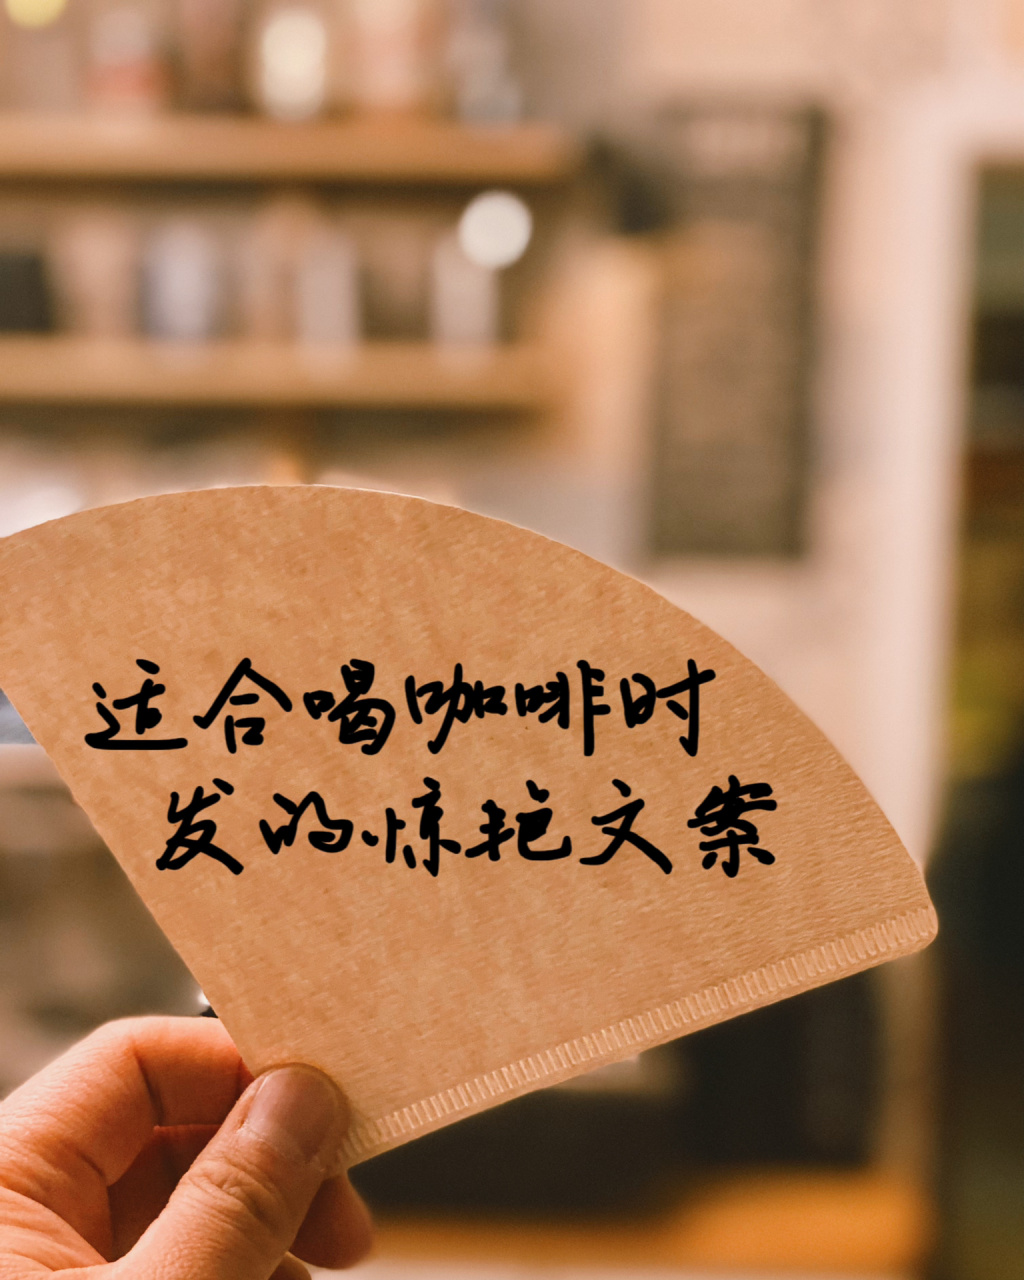 适合喝咖啡时
发的惊艳文案